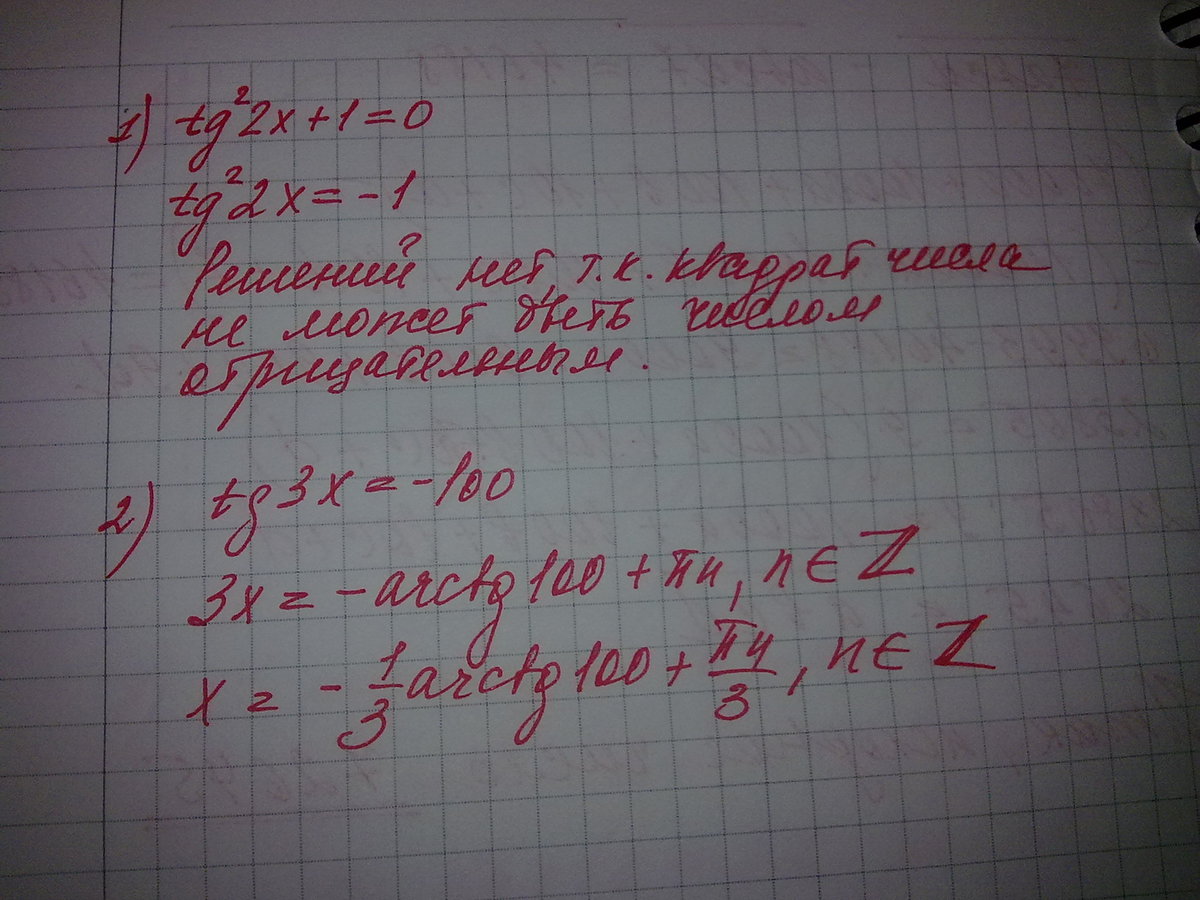 1) tg²2x+1=0
tg²2x=-1
Решений нет, т.к. квадрат числа
не может быть числом
отрицательным.
2) tg3x=-100
3x=-arctg100+πn, n∈Z
x=-1/3arctg100+πn/3, n∈Z